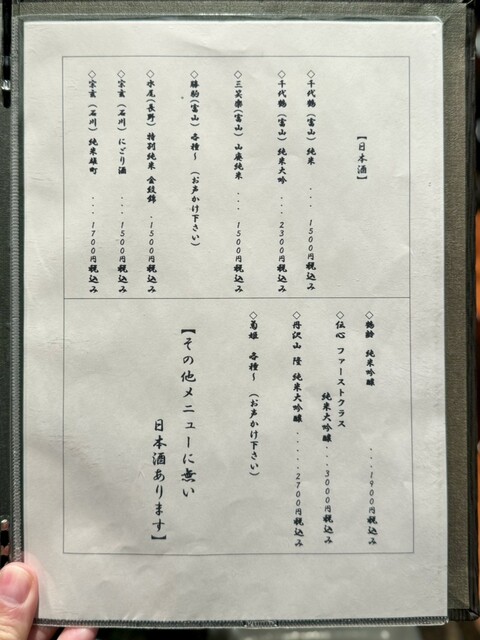 【日本酒】
◇千代鶴（富山）純米 ... 1500円税込み
◇千代鶴（富山）純米大吟 ... 2300円税込み
◇三笑楽（富山）山廃純米 ... 1500円税込み
◇勝駒（富山）各種～（お声かけ下さい）
◇水尾（長野）特別純米 金紋錦 .1500円税込み
◇宗玄（石川）にごり酒 ... 1500円税込み
◇宗玄（石川）純米雄町 ... 1700円税込み
◇鶴齢 純米吟醸 ...1900円税込み
◇伝心 ファーストクラス
純米大吟醸...3000円税込み
◇丹沢山 隆 純米大吟醸 .....2700円税込み
◇菊姫 各種～（お声かけ下さい）
【その他メニューに無い
日本酒あります】